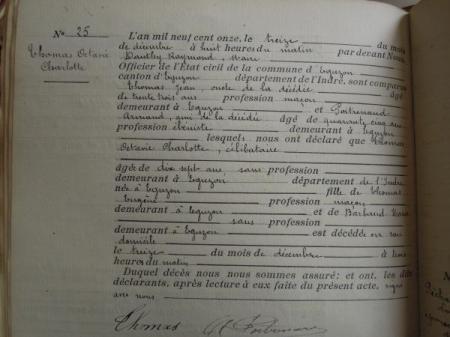 No 25
Thomas Octavie
Charlotte
L'an mil neuf cent onze, le treize du mois
de décembre à huit heures du matin par devant Nous,
Raymond, Maire
Officier de l'État civil de la commune d'Eguzon
canton d'Eguzon département de l'Indre, sont comparus
Thomas Jean, oncle de la décédée âgé
de trente trois ans profession maçon
demeurant à Eguzon et
Armand, ami de la décédée âgé de quarante cinq ans
profession ébéniste demeurant à Eguzon
lesquels nous ont déclaré que Thomas
Octavie Charlotte, célibataire
âgée de dix sept ans, sans profession
demeurant à Eguzon département de l'Indre
née à Eguzon fille de Thomas
Eugène profession maçon
demeurant à Eguzon et de Barbaud Maria
sans profession
demeurant à Eguzon est décédée en son
domicile
le treize du mois de décembre à trois
heures du matin
Duquel décès nous nous sommes assuré; et ont, les dits
déclarants, après lecture à eux faite du présent acte, signé
avec nous
Thomas